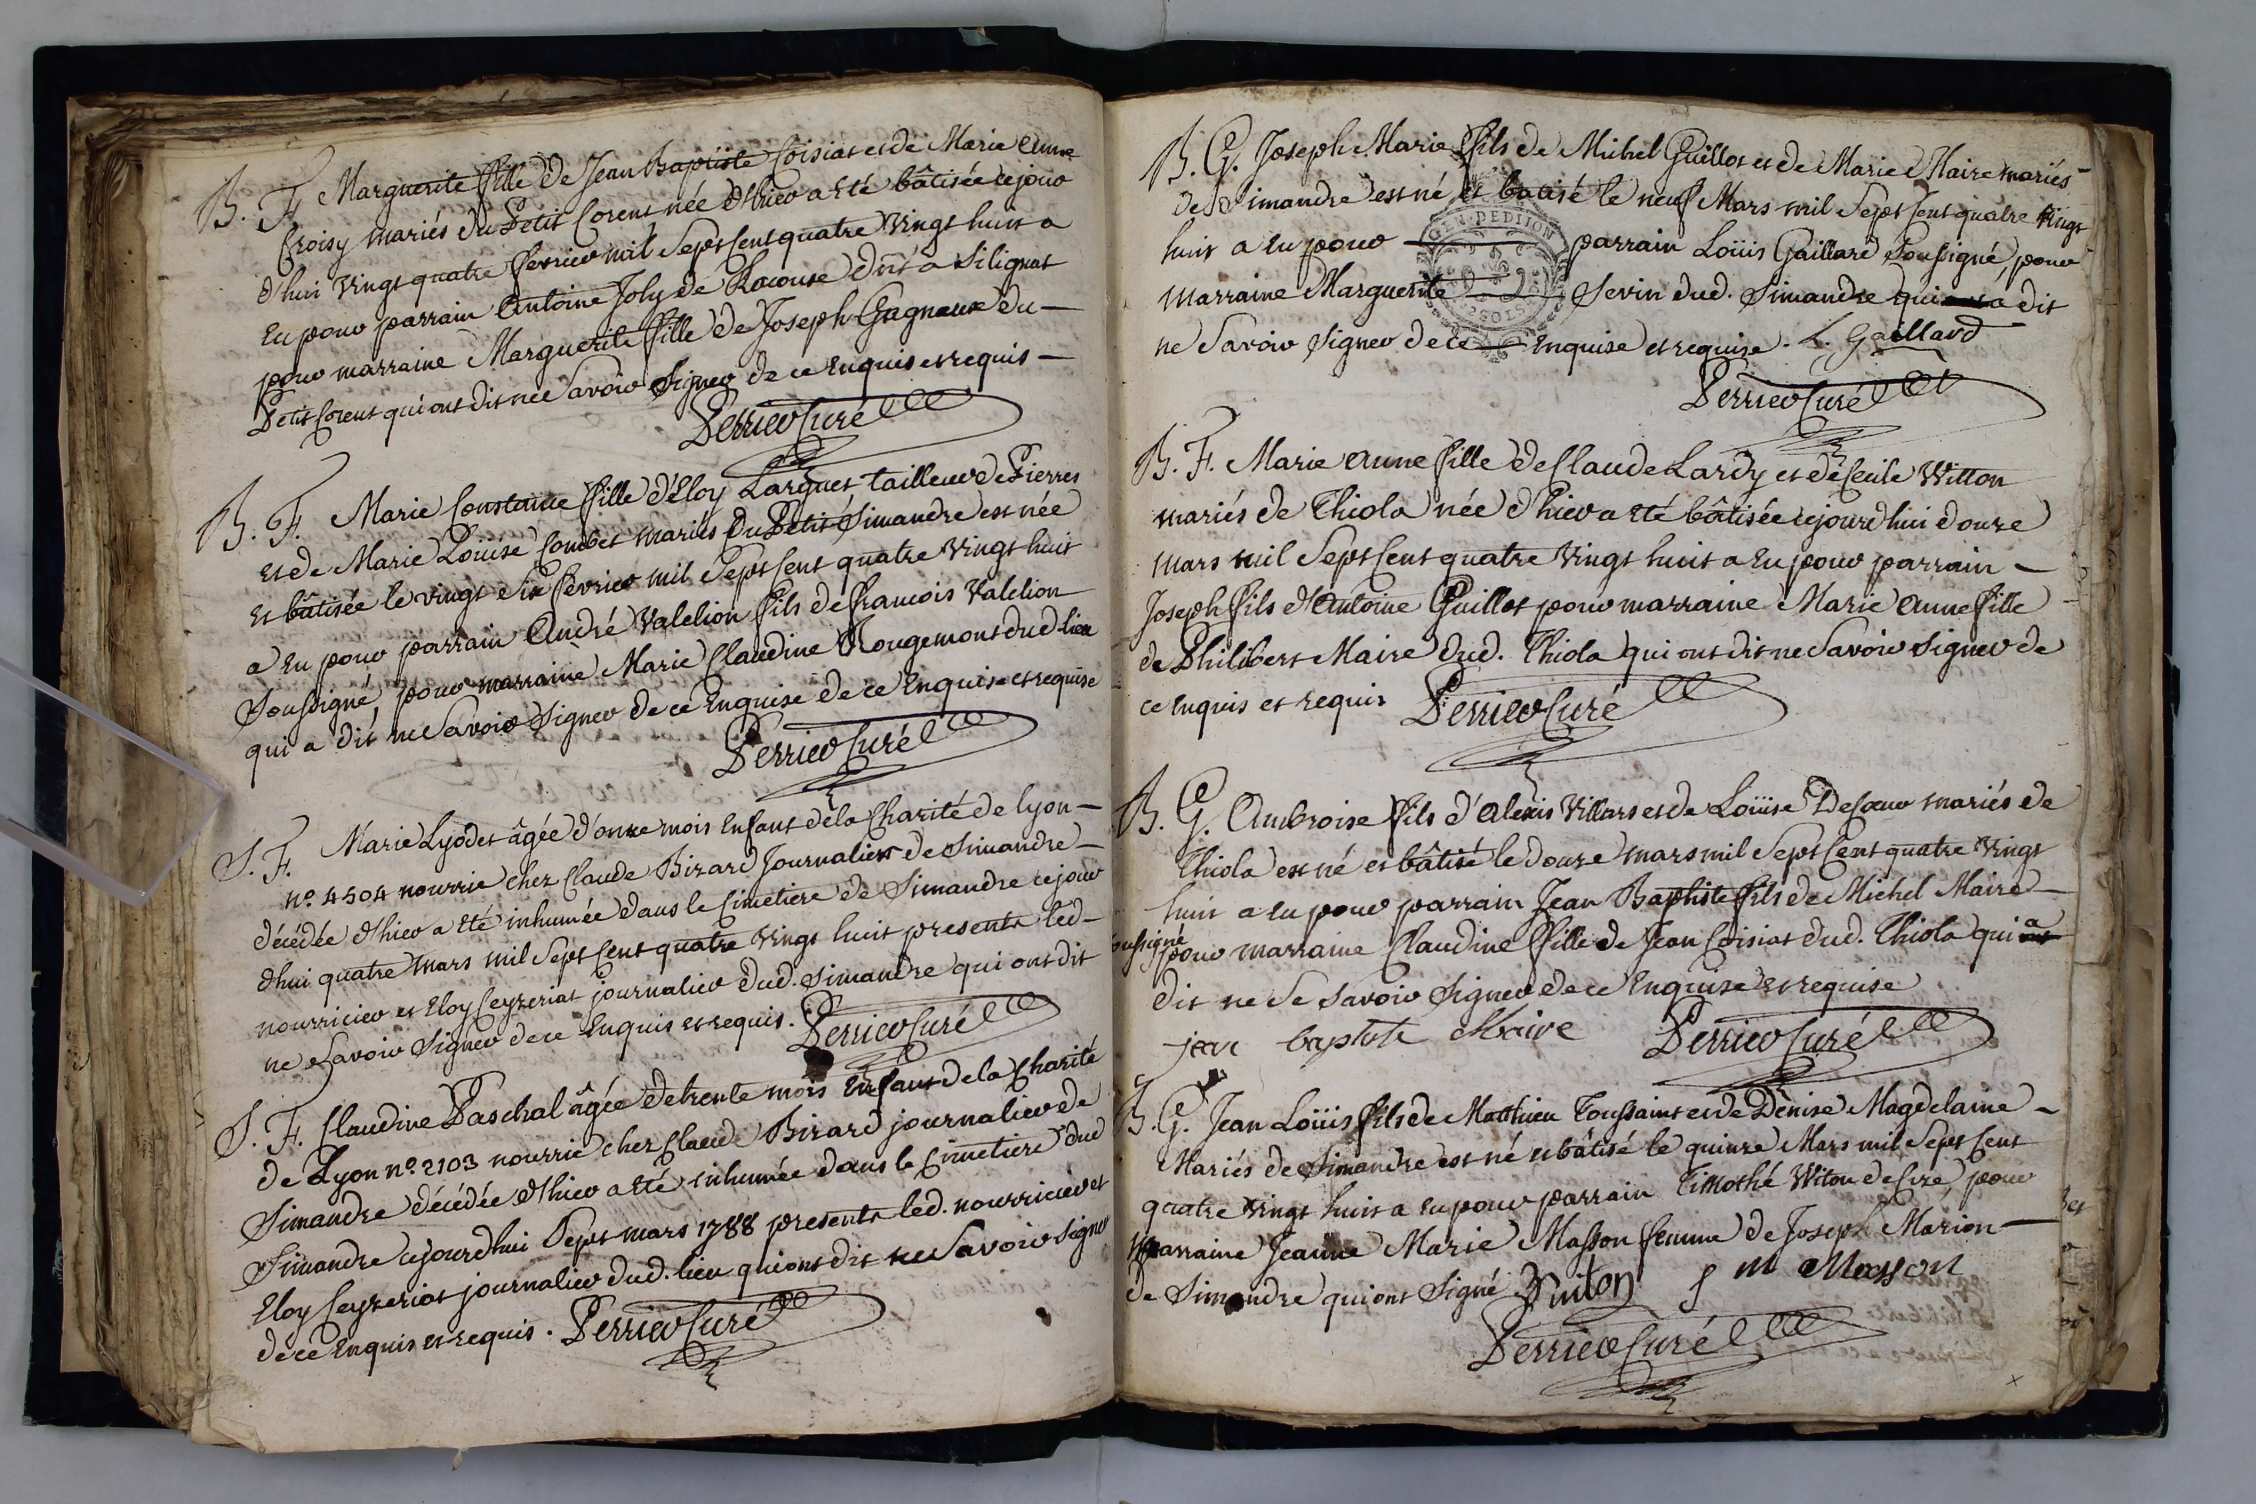 B. F. Marguerite fille de Jean Baptiste Coisiat et de Marie Anne
Croisy mariés du Petit Corent née d'hier a eté bâtisée ce jour
d'hui vingt quatre fevrier mil sept cent quatre vingt huit a
eu pour parrain Antoine Joly de Racouse dnt a Silignat
pour marraine Marguerite fille de Joseph Gagneux du
Petit Corent qui ont dit ne savoir signer de ce enquis et requis
Perrier Curé
B. F. Marie Constance fille d'Eloy Larguet tailleur de Pierres
et de Marie Loüise Combet mariés du Petit Simandre est née
et bâtisée le vingt six fevrier mil sept cent quatre vingt huit
a eu pour parrain André Valelion fils de francois Valelion
soussigné, pour marraine Marie Claudine Rougemont dud lieu
qui a dit ne savoir signer de ce enquise de ce enquise et requise
Perrier Curé
S. F. Marie Lyodet âgée d'onze mois enfant de la Charité de Lyon
n.º 4504 nourrie chez Claude Birard journalier de Simandre
décédée d'hier a eté inhumée dans le cimetiere de Simandre ce jour
d'hui quatre mars mil sept cent quatre vingt huit presents led
nourricier et Eloy Ceyzeriat journalier dud. Simandre qui ont dit
ne savoir signer de ce enquis et requis. Perrier Curé
S. F. Claudine Paschal âgée de trente mois enfant de la Charité
de Lyon n.º 2103 nourrie chez Claude Birard journalier de
Simandre décédée d'hier a eté inhumée dans le cimetiere dud
Simandre ce jourd'hui sept mars 1788 presents led. nourricier et
Eloy Ceyzeriat journalier dud. lieu qui ont dit ne savoir signer
de ce enquis et requis. Perrier Curé
B. G. Joseph Marie fils de Michel Guillot et de Marie Maire mariés
de Simandre est né et batisé le neuf Mars mil sept cent quatre vingt
huit a eu pour parrain Loüis Gaillard soussigné, pour
marraine Marguerite Sevin dud. Simandre qui a dit
ne savoir signer de ce enquise et requise. L. Gaillard
Perrier Curé
B. F. Marie Anne fille de Claude Lardy et de Cecile Vitton
mariés de Thiola née d'hier a eté bâtisée ce jourd'hui douze
mars mil sept cent quatre vingt huit a eu pour parrain
Joseph fils d'Antoine Guillot pour marraine Marie Anne fille
de Philibert Maire dud. Thiola qui ont dit ne savoir signer de
ce enquis et requis Perrier Curé
B. G. Ambroise fils d'Alexis Villars et de Loüise Decour mariés de
Thiola est né et bâtisé le douze mars mil sept cent quatre vingt
huit a eu pour parrain Jean Baptiste fils de Michel Maire
soussigné pour marraine Claudine fille de Jean Coisiat dud. Thiola qui a
dit ne se savoir signer de ce enquise et requise
jean baptiste Maire Perrier Curé
B. G. Jean Loüis fils de Matthieu Toussaint et de Denise Magdelaine
Mariés de Simandre est né et bâtisé le quinze Mars mil sept cent
quatre vingt huit a eu pour parrain Timothé Viton de Cize, pour
marraine Jeanne Marie Masson femme de Joseph Marion
de Simandre qui ont signé Vuiton J m Masson
Perrier Curé